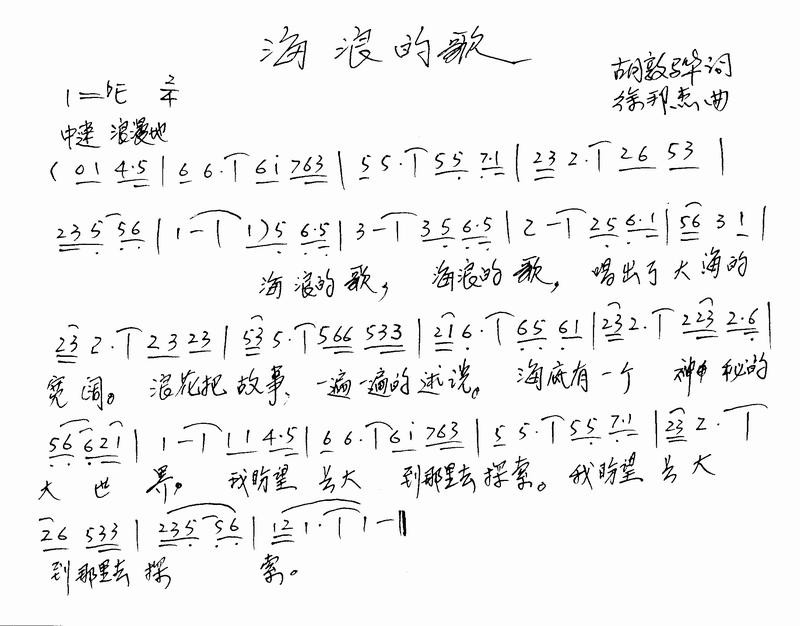 海浪的歌
胡敦骅词
1=♭E 2/4
徐邦杰曲
中速 浪漫地
( 0 1 4·5 | 6 6·| 6 i 7 6 3 | 5 5·| 5 5 7·1 | 2 3 2·| 2 6 5 3 |
2 3 5 5 6 | 1 - | 1 ) 5 6·5 | 3 - | 3 5 6·5 | 2 - | 2 5 6·1 | 5 6 3 1 |
海浪的歌, 海浪的歌, 唱出了大海的
2 3 2·| 2 3 2 3 | 5 3 5·| 5 6 6 5 3 3 | 2 1 6·| 6 5 6 1 | 2 3 2·| 2 2 3 2·6 |
宽阔。 浪花把故事, 一遍一遍的述说。 海底有一个 神秘的
5 6 6 2 1 | 1 - | 1 1 4·5 | 6 6·| 6 i 7 6 3 | 5 5·| 5 5 7·1 | 2 3 2·|
大世界, 我盼望长大 到那里去探索。 我盼望长大
2 6 5 3 3 | 2 3 5 5 6 | 1 2 1·| 1 - ‖
到那里去探 索。